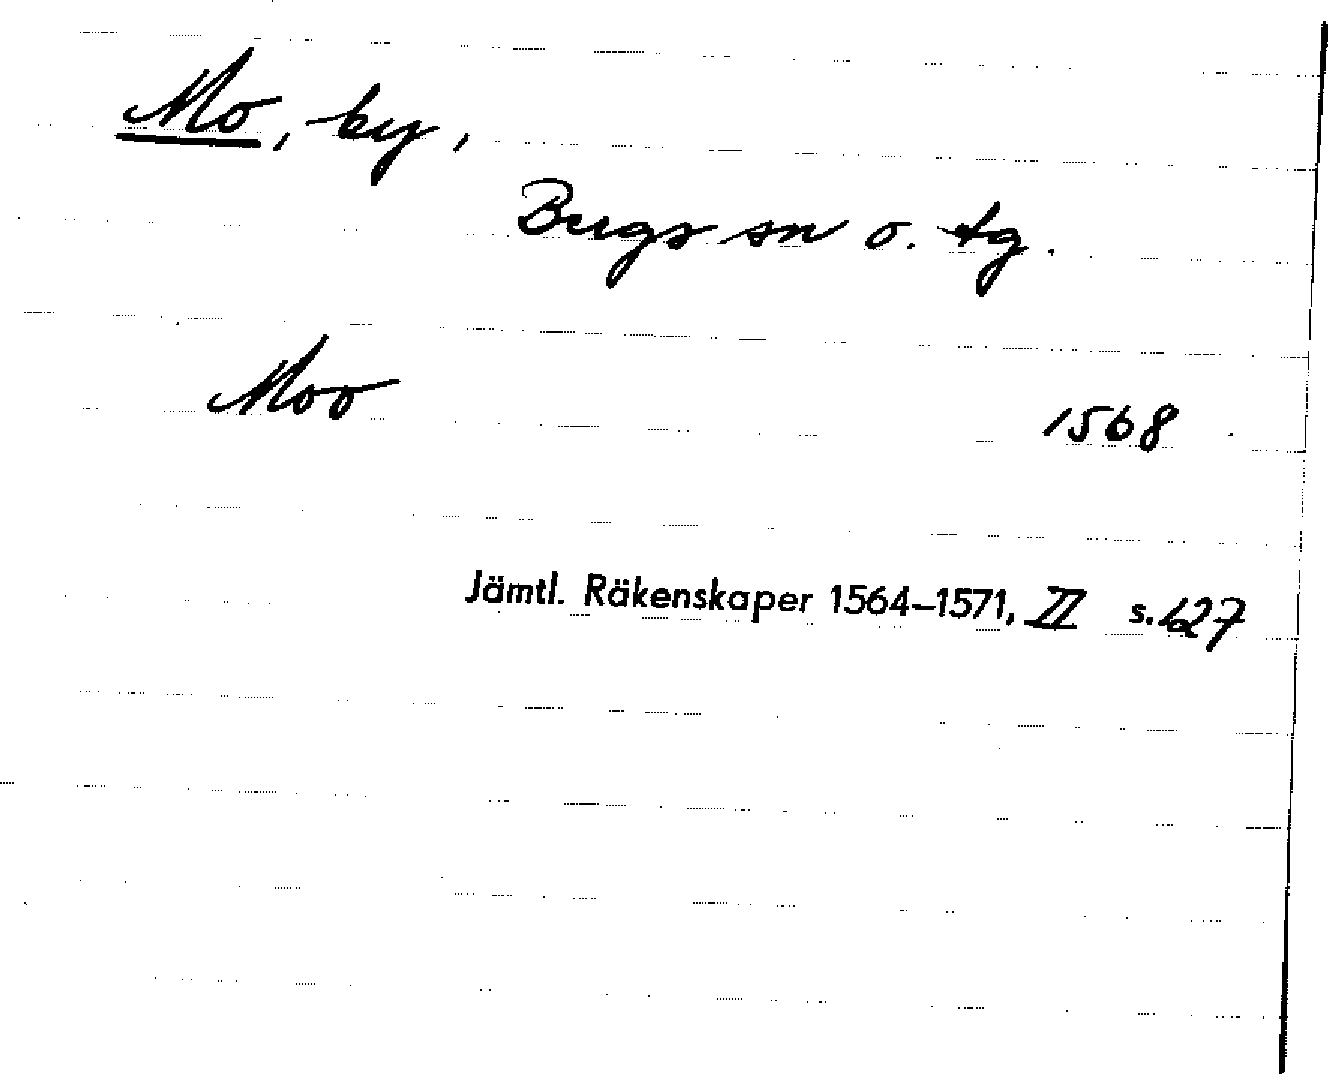 Mo, by,
Bergs sn o. tg.
Moo 1568
Jämtl. Räkenskaper 1564–1571, II s. 127